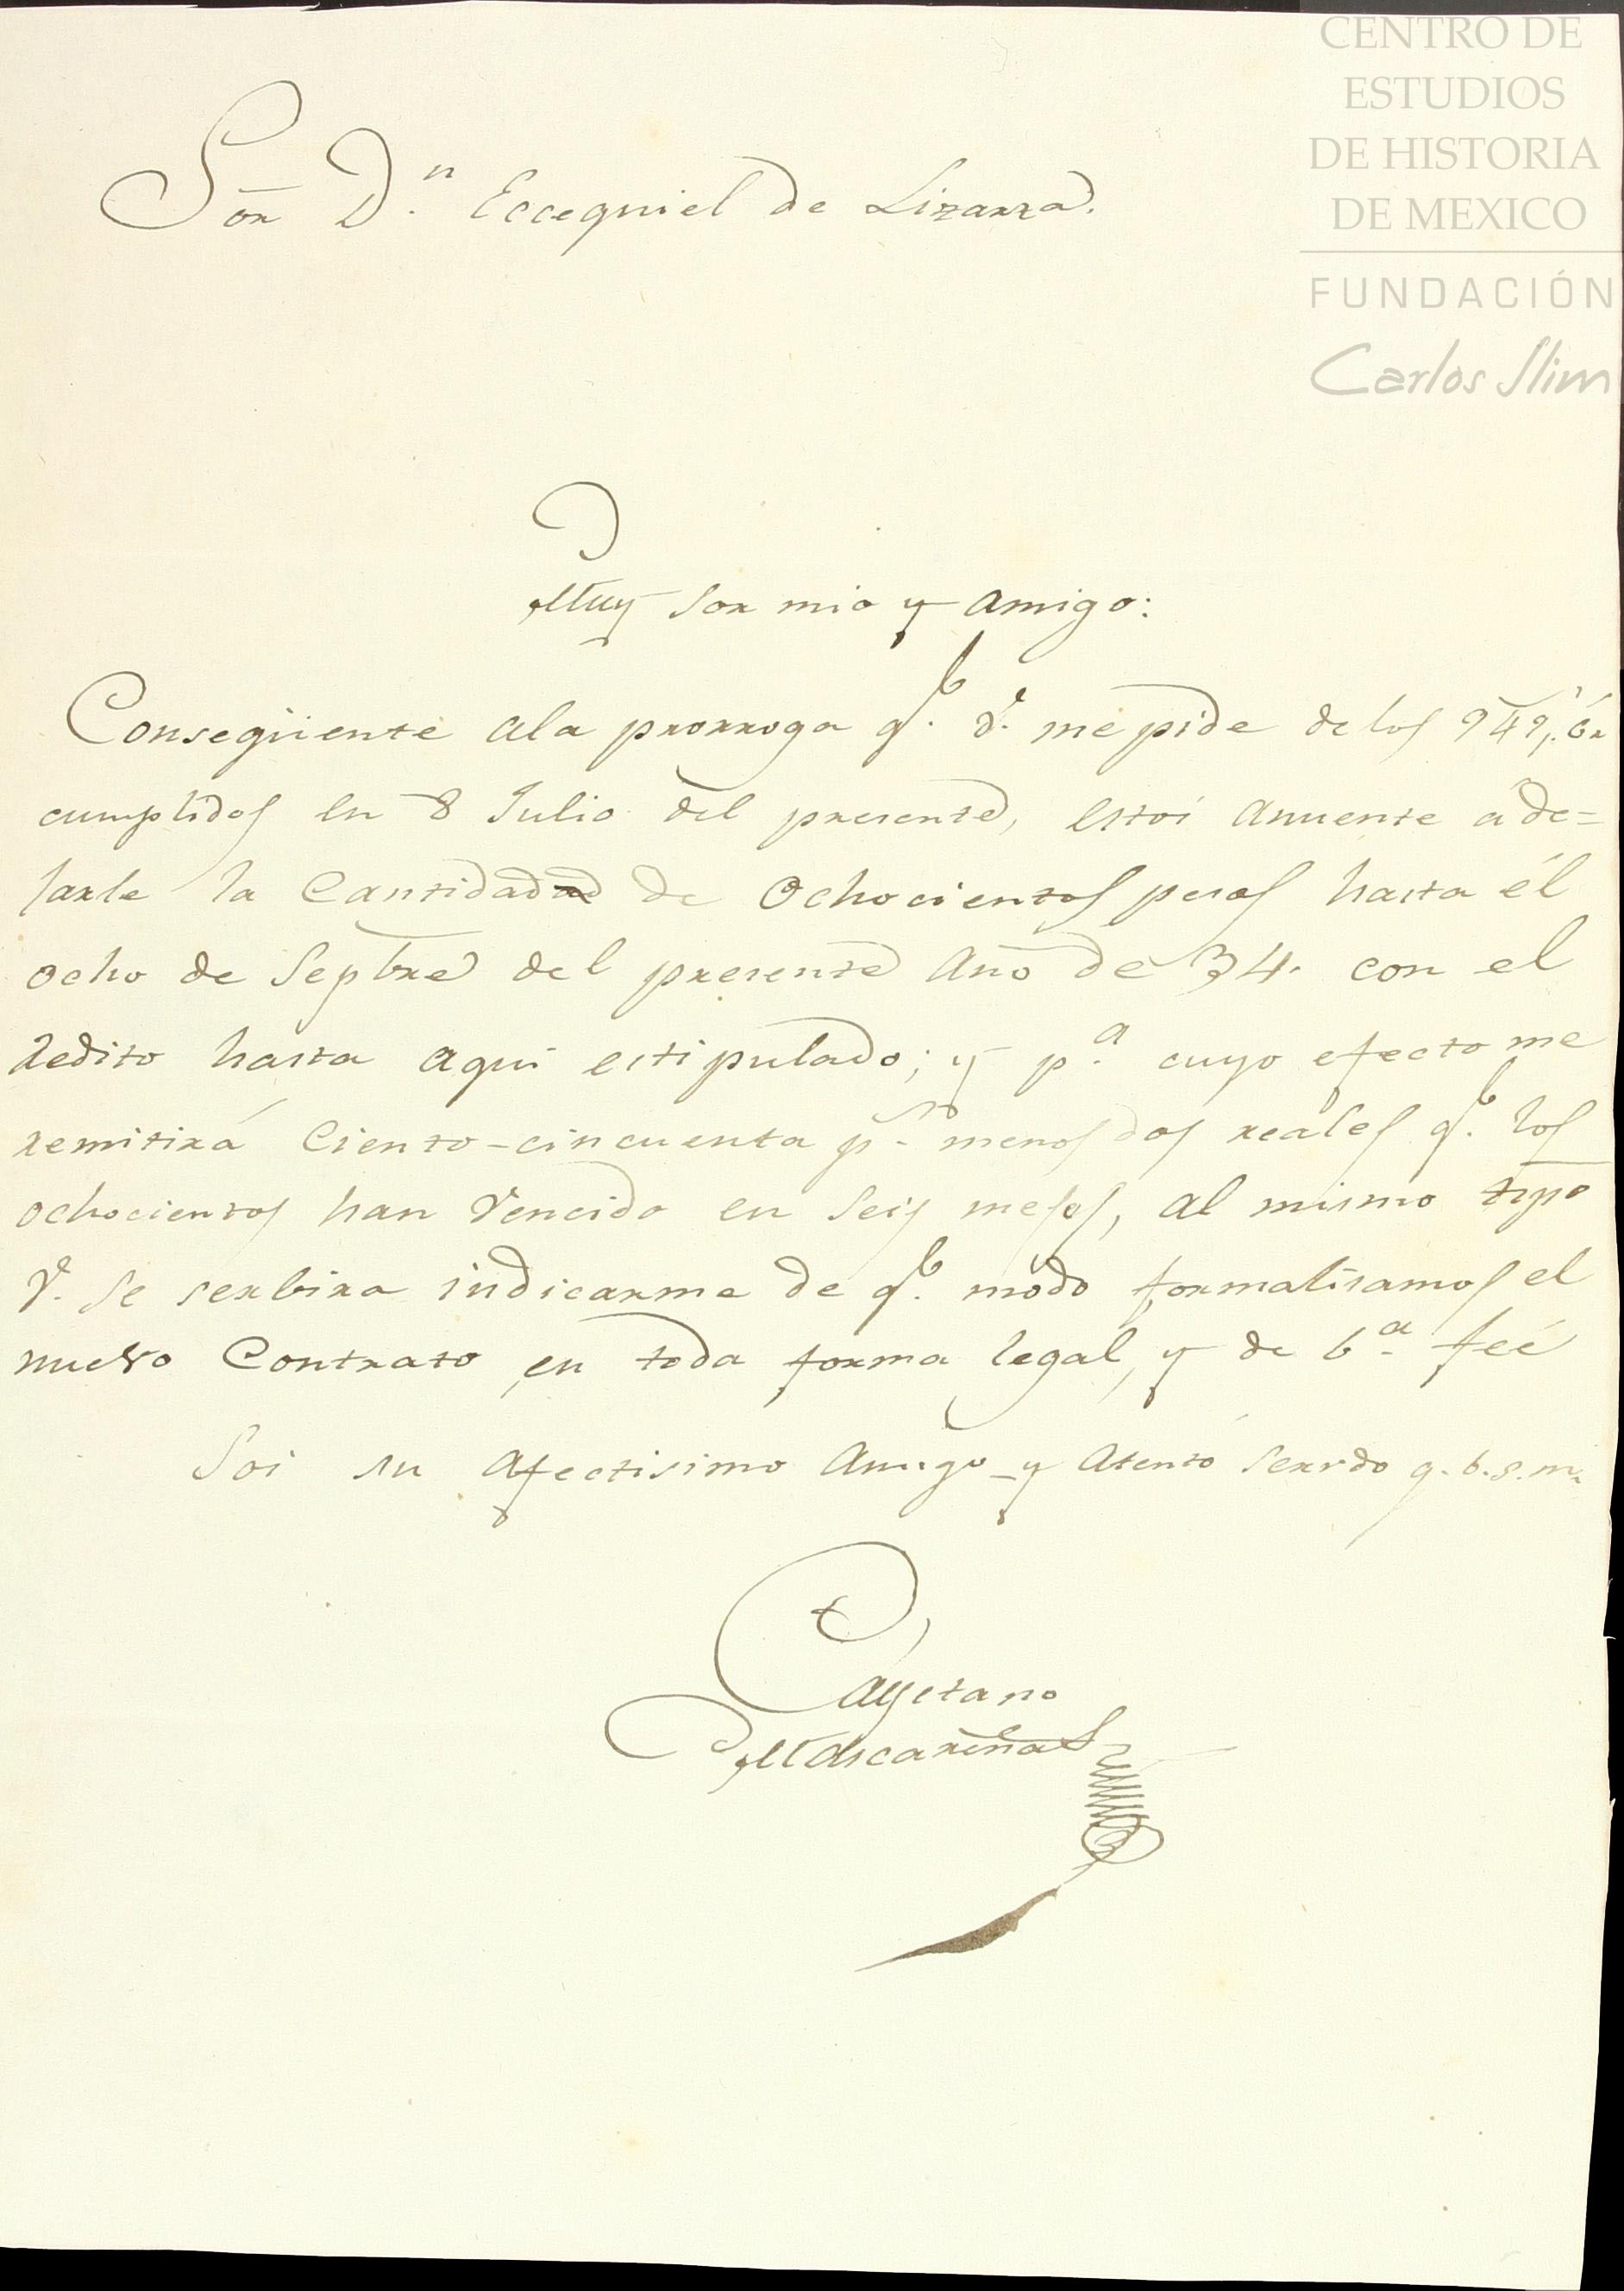 CENTRO DE
ESTUDIOS
DE HISTORIA
DE MEXICO
FUNDACIÓN
Carlos Slim
Sōr D.n Eccequiel de Lizarza.
Muy Sor mio y amigo:
Consegüente ala prorroga q.e V. me pide de los 949p. 6r
cumplidos en 8 Julio del presente, estoi anuente a de=
jarle la Cantidad de Ochocientos pesos hasta él
ocho de Septbre del presente año de 34. con el
redito hasta aqui estipulado; y p.a cuyo efecto me
remitirá Ciento-cincuenta p.s menos dos reales q.e los
ochocientos han Vencido en Seis meses, al mismo tipo
V. se serbira indicarme de q.e modo formalisamos el
nuevo Contrato en toda forma legal, y de b.a feé
Soi su afectisimo Amigo y Atento Servdo q.b.s.m.
Cayetano
Mascareñas